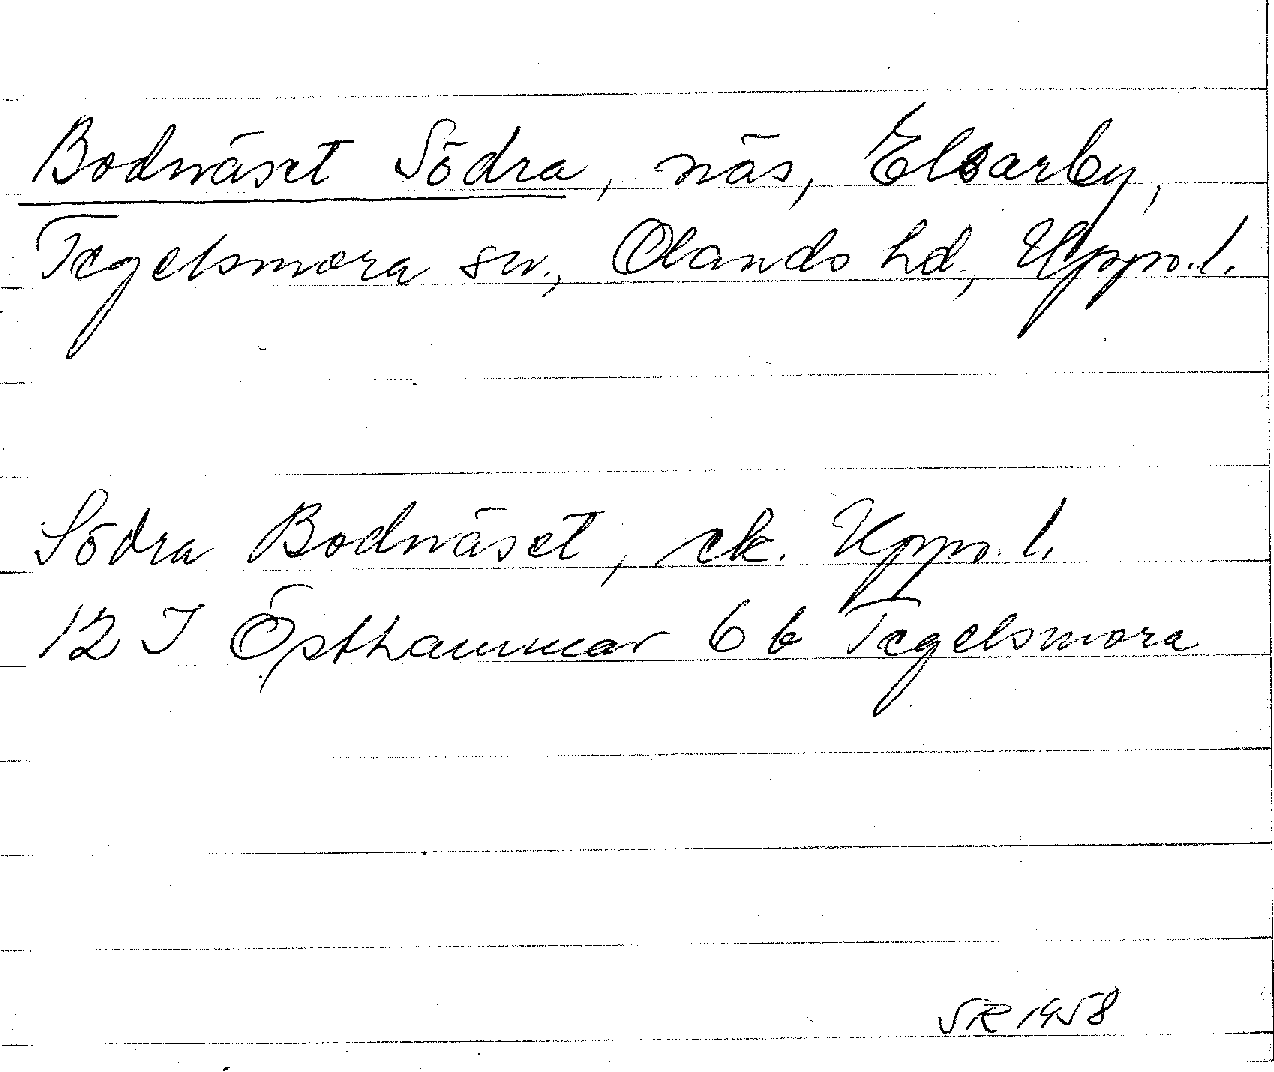 Bodnäset Södra, näs, Elsarby,
Tegelsmora sn., Olands hd, Upps. l.
Södra Bodnäset, ek. Upps. l.
12 I Östhammar 6 b Tegelsmora
SR 1958